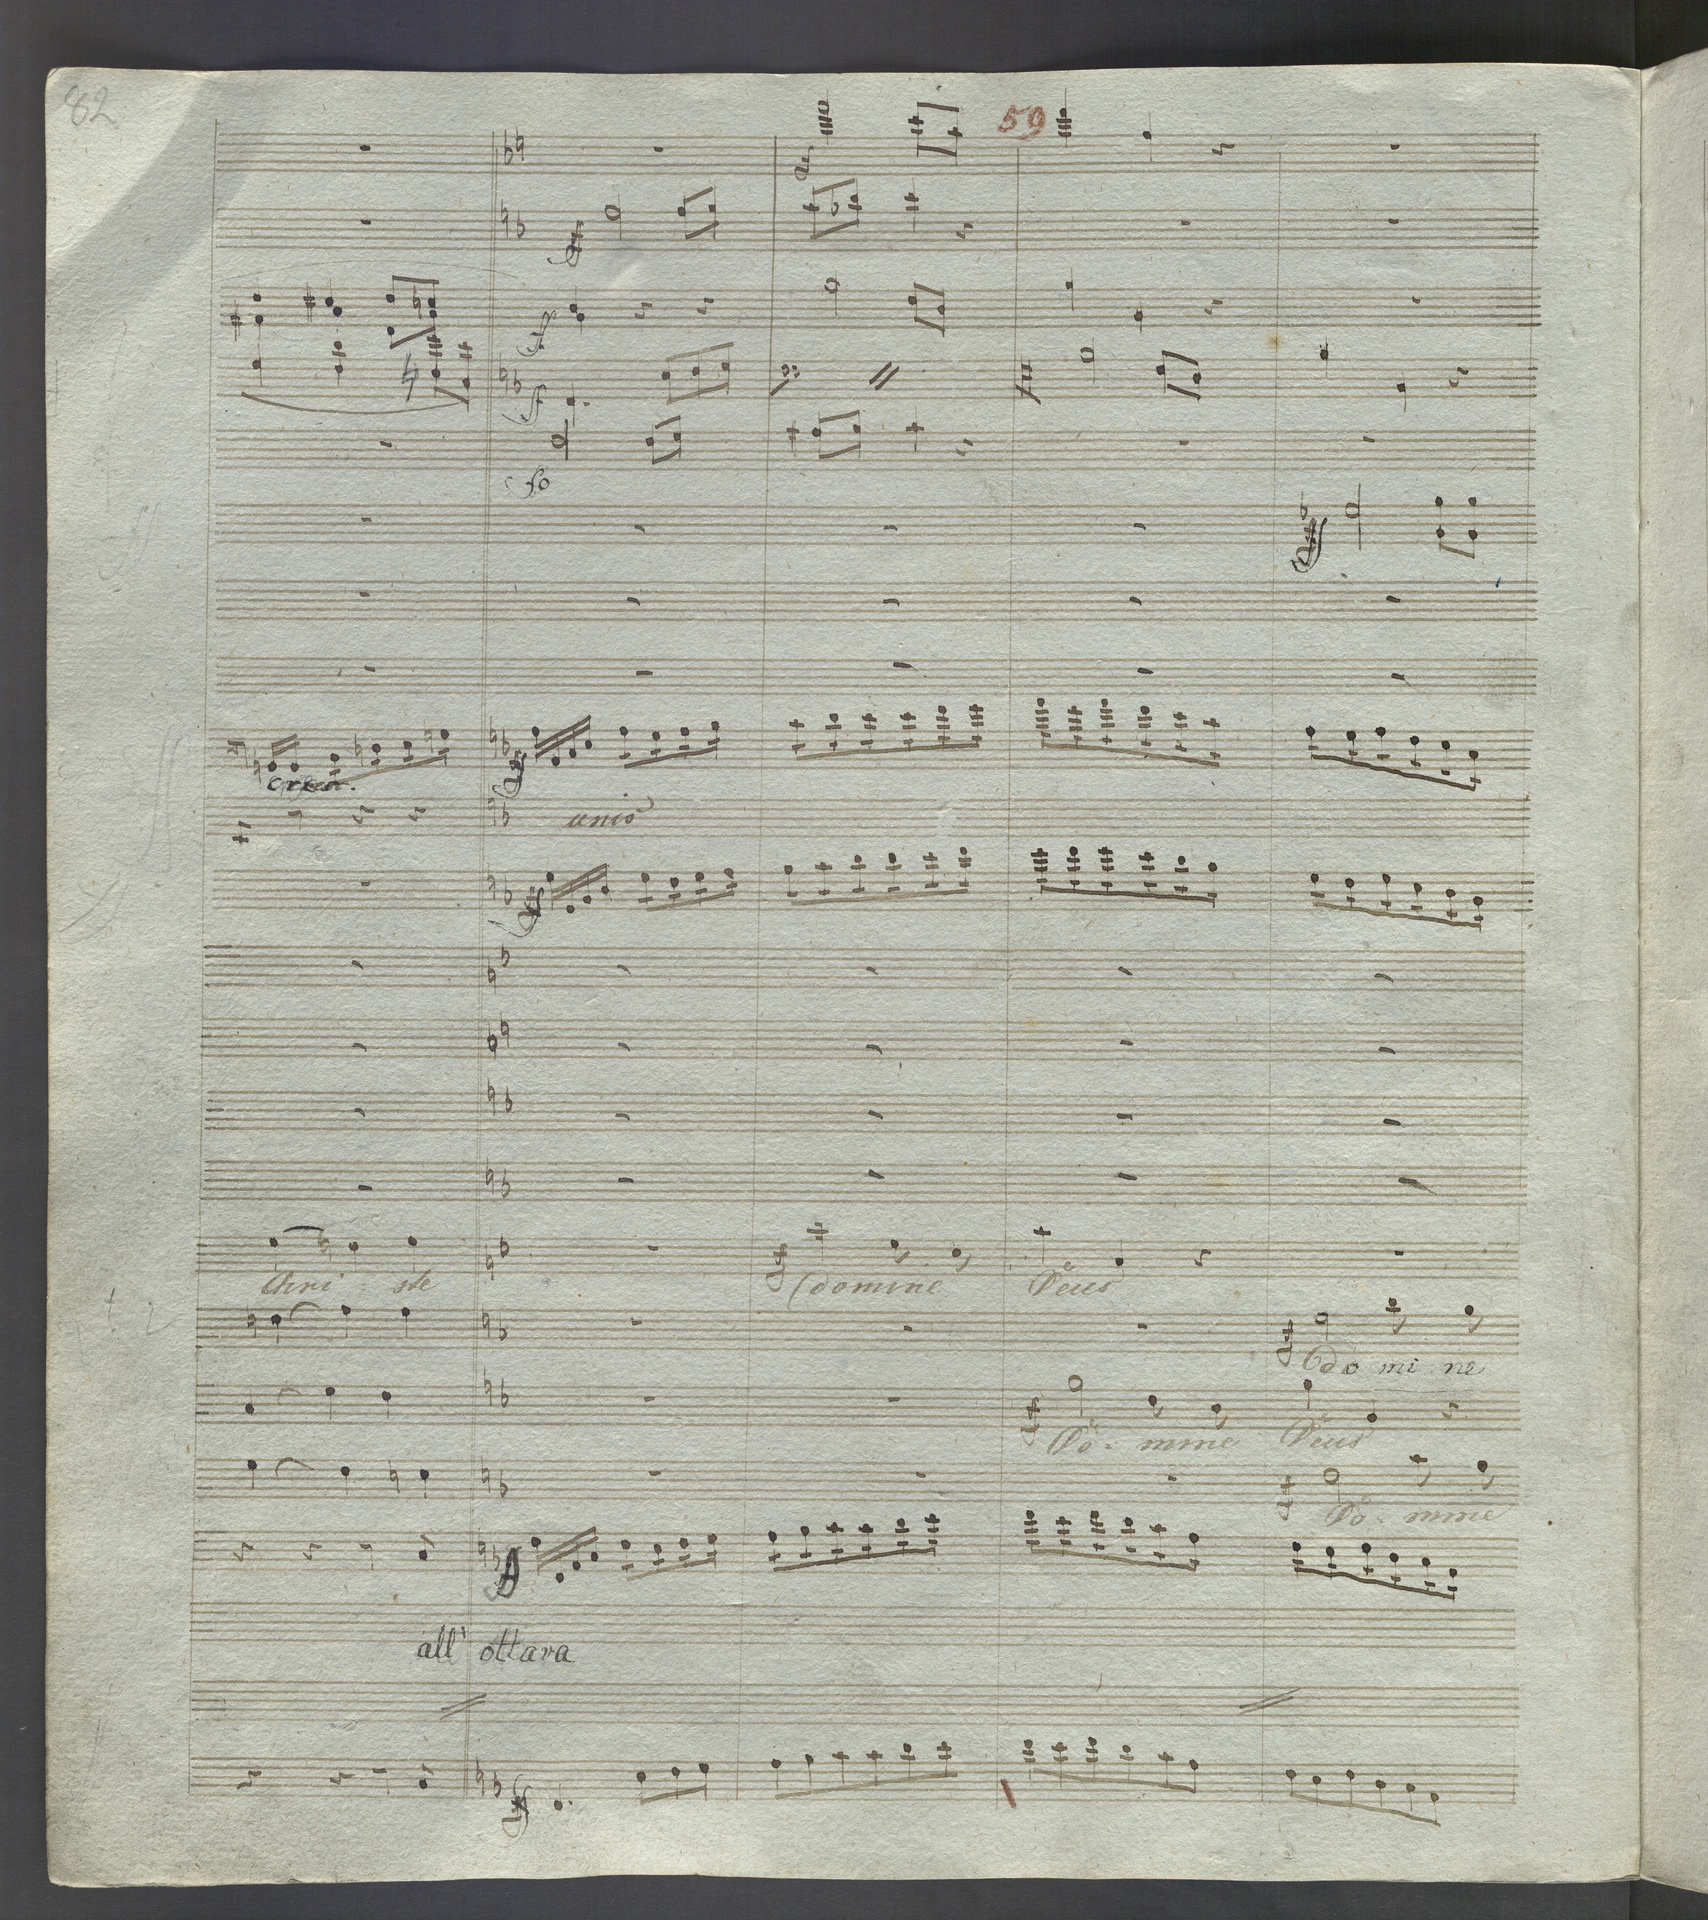 82
59
ff
ff
f
f
fo
ff
cresc.
ff
unis
ff
Chri - ste
ff
domine
Deus
ff
do mi ne
ff
Do - mine
Deus
ff
Do - mine
ff
all' ottava
ff